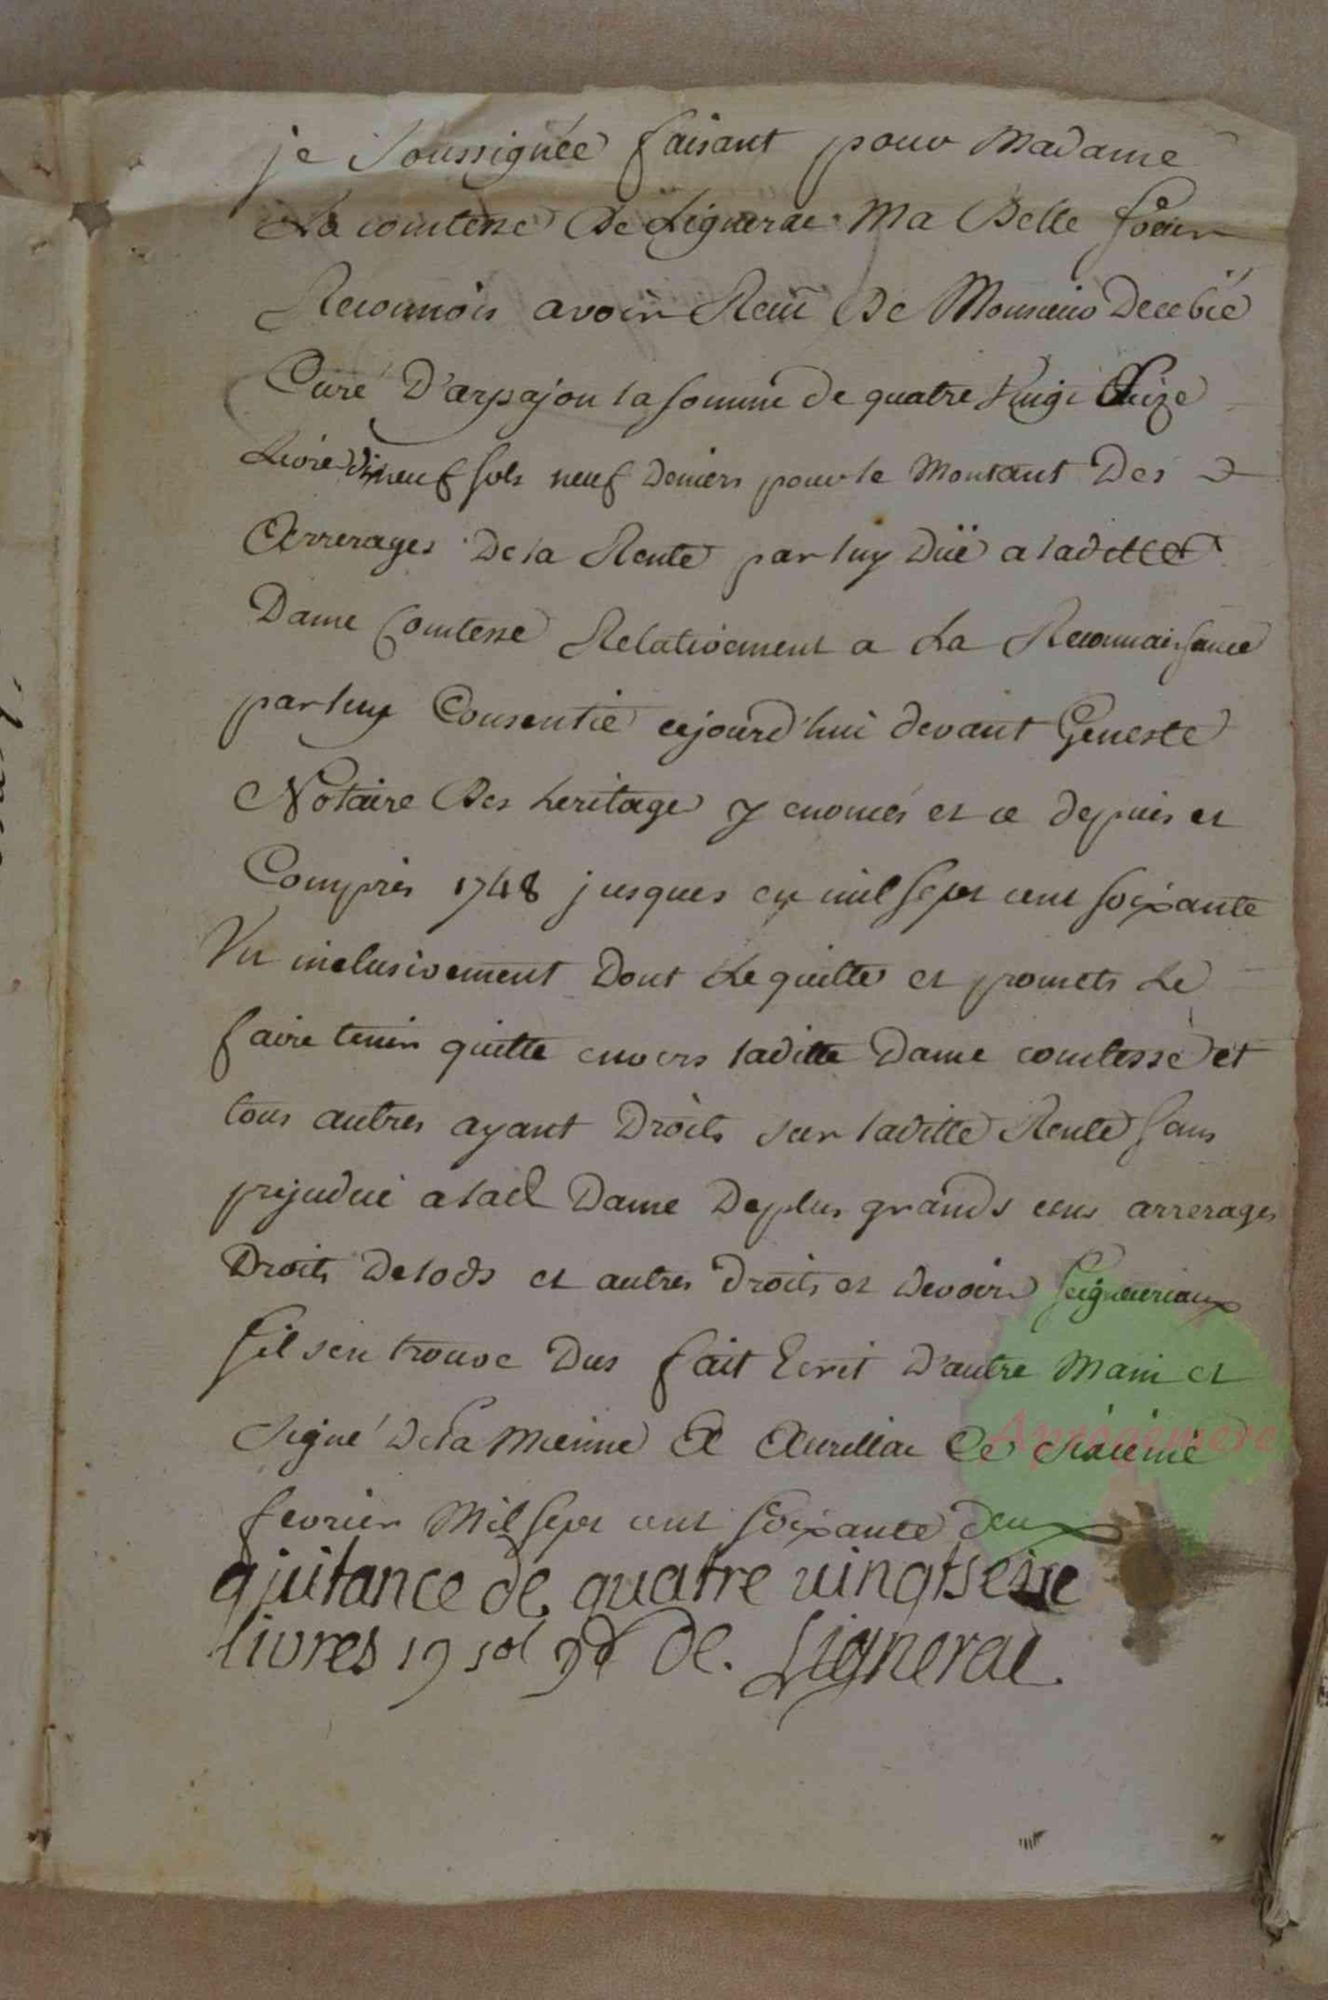 je Soussignée faisant pour Madame
La comtesse De Lignerac Ma Belle Soeur
Reconnois avoir Recu De Monsieur
Curé D'arpajon la somme de quatre Vingt Seize
Livre dixneuf sols neuf Deniers pour le Montant Des
Arrerages De la Rente par luy Düe a laditte
Dame Comtesse Relativement a La Reconnaissance
par luy Consentie cejourd'hui devant Geneste
Notaire Des heritage y enoncés et ce depuis et
Compris 1748 jusques en mil sept cent soixante
Un inclusivement Dont Le quitte et promets Le
faire tenir quitte envers laditte Dame comtesse et
tous autres ayant Droits sur laditte Rente sans
prejudice a lad Dame De plus grands cens arrerages
Droits De lods et autres Droits et Devoirs Seigneuriaux
s'il s'en trouve Dus fait Ecrit D'autre Main et
Signé De la Mienne A Aurillac Ce Sixieme
fevrier Mil sept cent soixante deux
quitance de quatre vingtseise
livres 19 sol 9d de. Lignerac.
Aprogemere